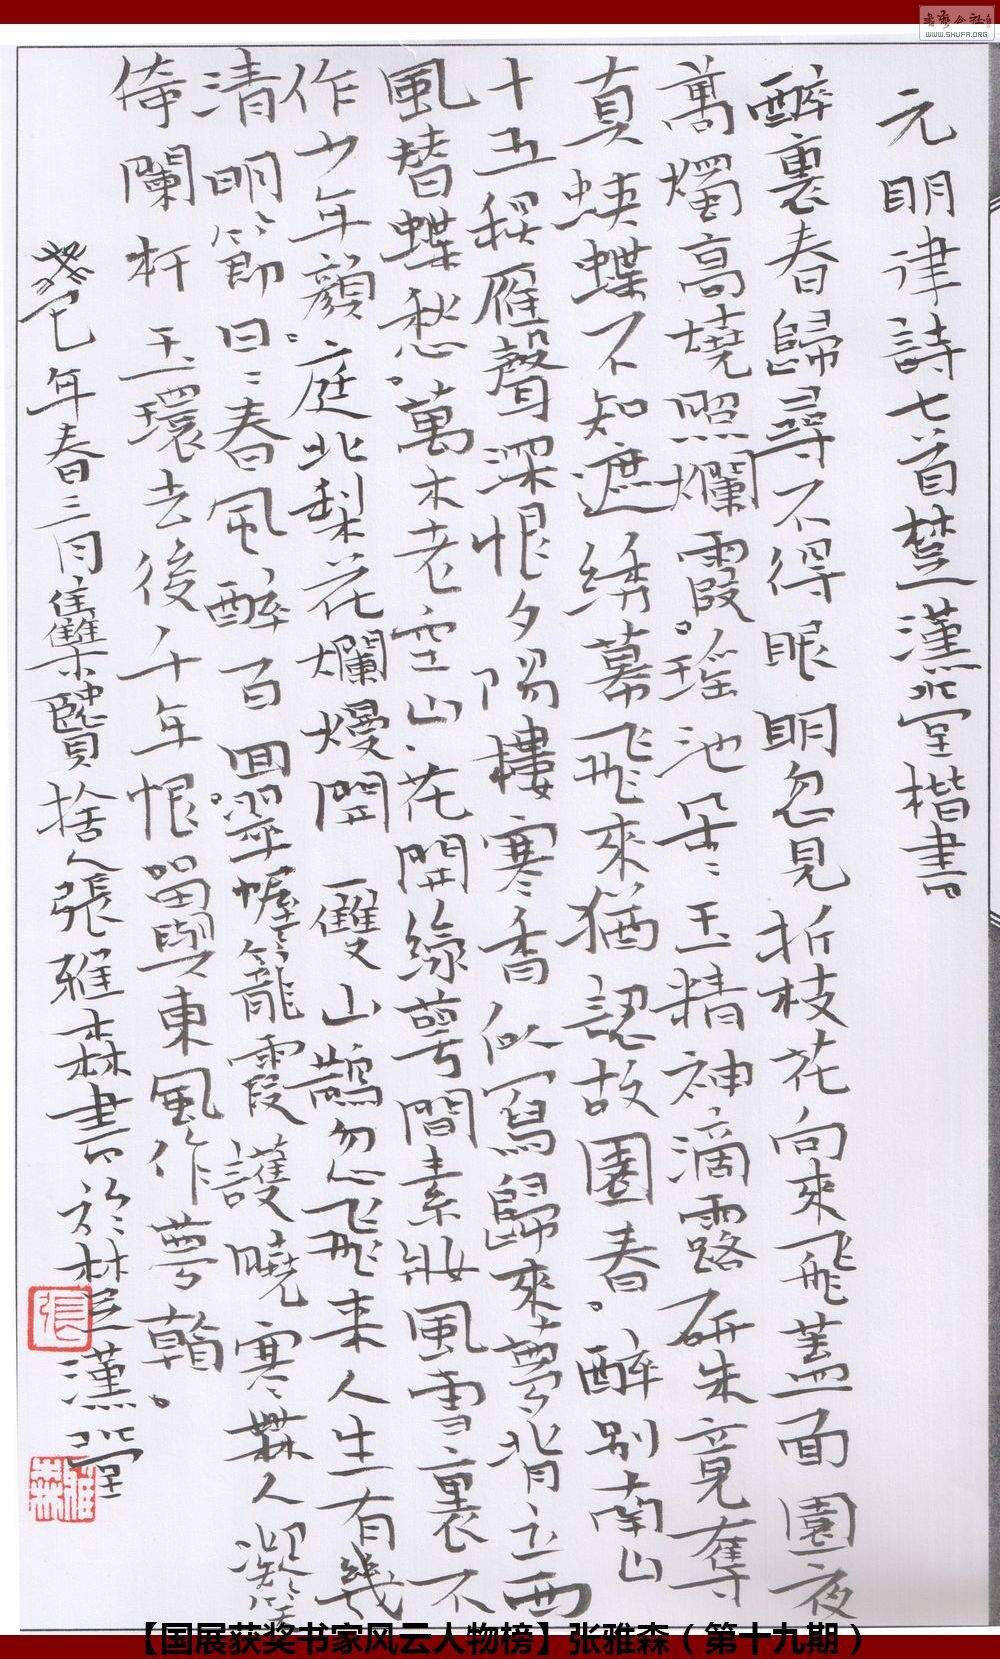 WWW.SHUFA.ORG
元明律詩七首楚漢堂楷書
醉裏春歸尋不得眼明忽見折枝花向來飛蓋西園夜
萬燭高燒照爛霞瑶池朵々玉精神滴露研朱竟奪
真蛺蝶不知遮绣幕飛來猶認故園春。醉别南山
十五稔雁聲深恨夕陽樓寒香似寫歸來夢背立西
風替蝶愁。萬木老空山、花開緑萼間素妝風雪裏不
作少年顔。庭北梨花爛熳開一雙山鵲忽飛来人生有幾
清明節日々春風醉百回。翠幄籠霞護曉寒無人凝笑
倚闌杆玉環去後千年恨留與東風作夢韓。
癸巳年春三月集賢捨人張雅森書於林邑漢堂
張
雅森
【国展获奖书家风云人物榜】张雅森（第十九期）